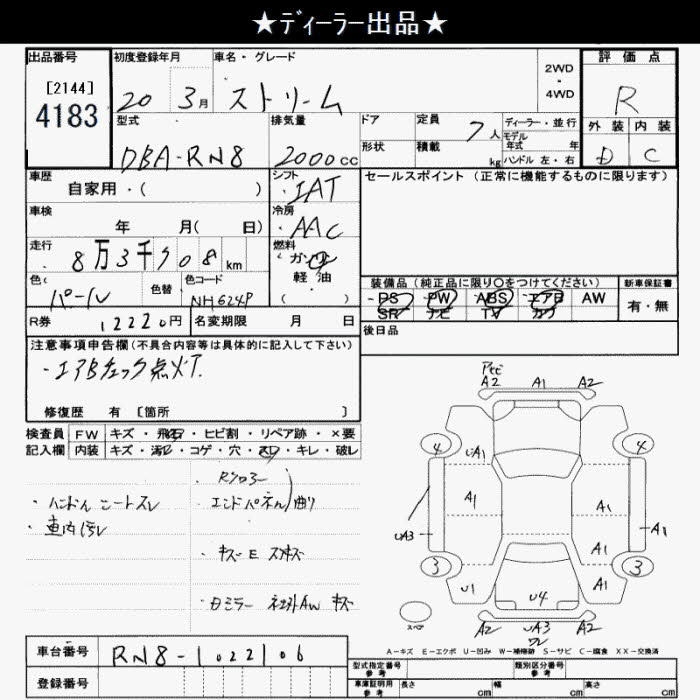 ★ディーラー出品★
出品番号 初度登録年月 車名・グレード 2WD・4WD 評価点
[2144]
4183
20 3月 ストリーム R
型式 排気量 ドア 定員 7人 ディーラー・並行 外装 内装
モデル年式 年
DBA-RN8 2000cc 形状 積載 kg ハンドル 左・右 D C
車歴 シフト セールスポイント(正常に機能するものに限ります)
自家用・( ) IAT
車検 冷房
年 月( 日) AAC
走行 燃料
8万3千908km ガソリン
色( 色替 色コード 軽油 装備品(純正品に限り○をつけてください) 新車保証書
パール NH624P ( ) PS PW ABS エアB AW 有・無
R券 12220円 名変期限 月 日 SR ナビ TV カワ
注意事項申告欄(不具合内容等は具体的に記入して下さい) 後日品
・エアBチェック点灯.
修復歴 有 [箇所 ]
検査員 FW キズ・飛石・ヒビ割・リペア跡・×要
記入欄 内装 キズ・汚れ・コゲ・穴・スレ・キレ・破レ
・ハンドル シートスレ
・車内汚レ
・エンドパネル 曲り
・キズE
A2 A1 A2
4 4
UA1
A1 A1
UA3 A1
A1
3 3
U1 U4 A1
スペア
A2 UA3 A2
ワレ
A-キズ E-エクボ U-凹み W-補修跡 S-サビ C-腐食 XX-交換済
車台番号 RN8-1022106
登録番号
型式指定番号 参考 類別区分番号 参考
車庫証明用 参考 長さ cm 幅 cm 高さ cm